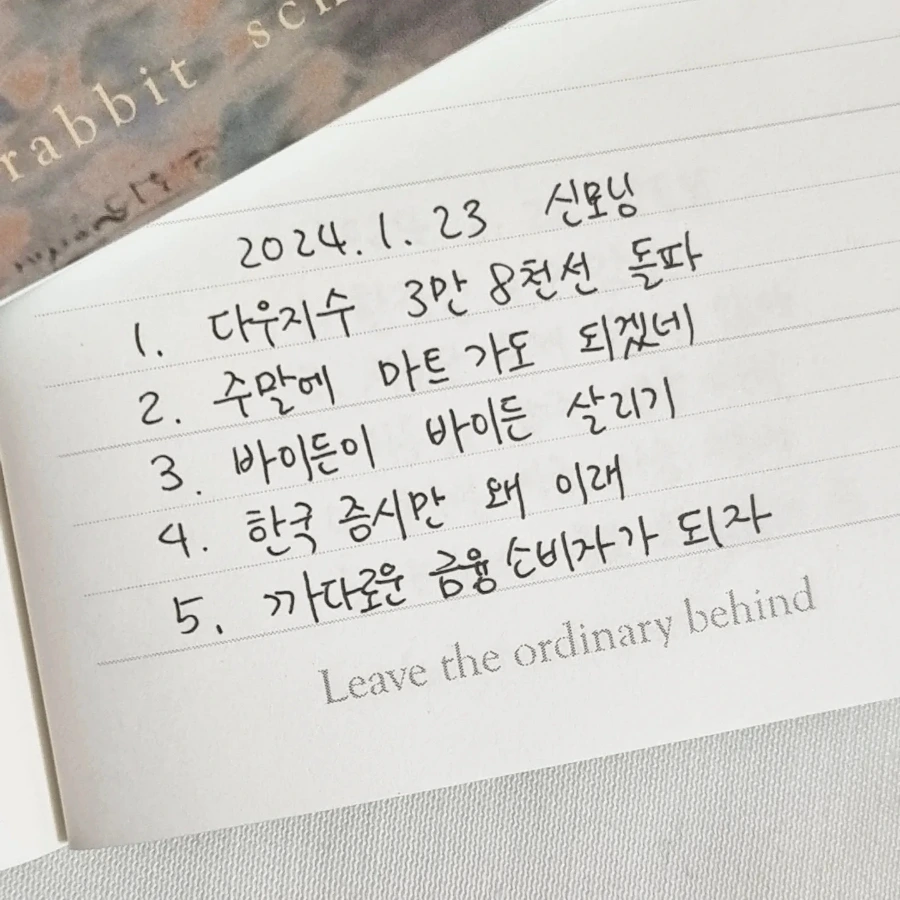 rabbit
2024. 1. 23 신모닝
1. 다우지수 3만 8천선 돌파
2. 주말에 마트 가도 되겠네
3. 바이든이 바이든 살리기
4. 한국 증시만 왜 이래
5. 까다로운 금융 소비자가 되자
Leave the ordinary behind